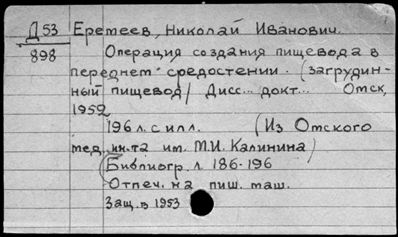 Д 53 Еремеев, Николай Иванович.
898 Операция создания пищевода в
переднем средостении. (Загрудин-
ный пищевод) Дисс... докт... Омск,
1952
196 л. с илл. (Из Омского
мед. ин-та им. М.И. Калинина)
(Библиогр. л. 186-196
Отпеч. на пиш. маш.
Защ. в 1953